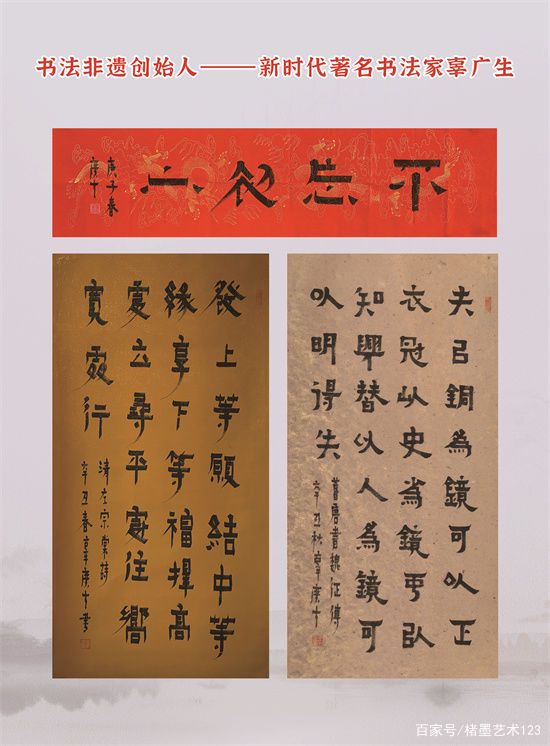 书法非遗创始人———新时代著名书法家辜广生
不忘初心
庚子春
廣十
發上等願結中等
緣享下等福擇高
處立尋平處住嚮
寬處行
清左宗棠詩
辛丑春辜廣十
夫以銅為鏡可以正
衣冠以史為鏡可以
知興替以人為鏡可
以明得失
舊唐書魏征傳
辛丑秋辜廣十
百家号/楮墨艺术123